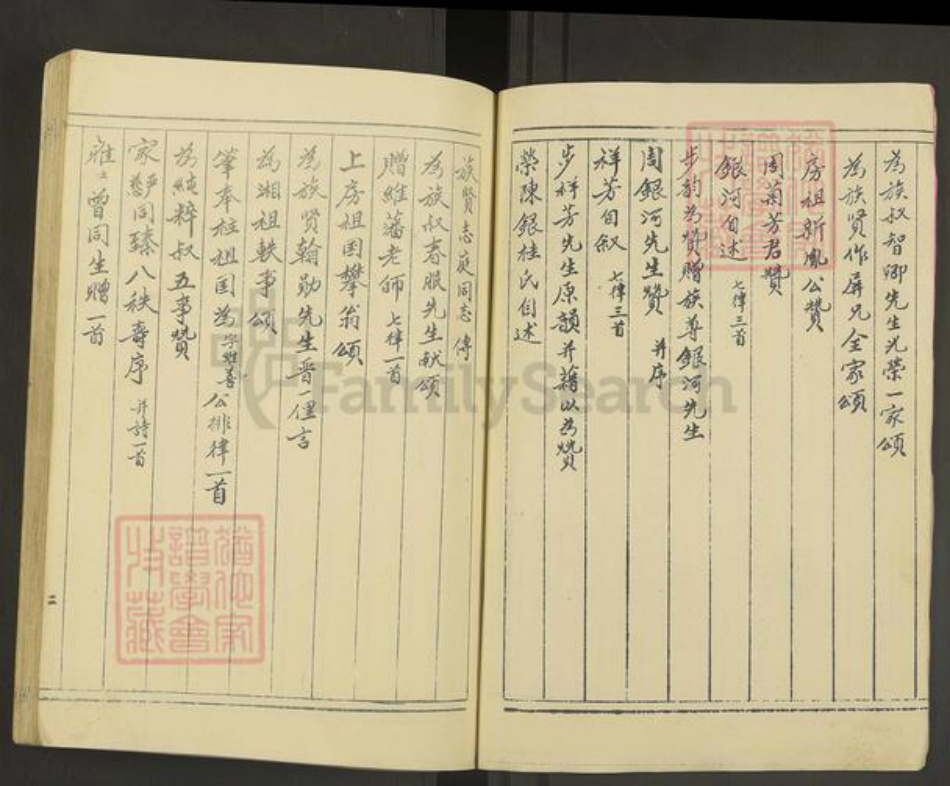 为族叔智卿先生光荣一家頌
为族贤作屏兄全家頌
房祖新鳳公赞
周菊芳君赞
銀河自述 七律三首
步韵为赞贈族尊銀河先生
周銀河先生赞 并序
祥芳自叙 七律三首
步祥芳先生原韻并藉以为赞
荣陳銀桂氏自述
族贤志庭同志傳
为族叔春眠先生献頌
贈維藩老师 七律一首
上房祖国攀翁頌
为族贤翰勋先生晋一俚言
为湘祖軼事頌
肇奉柱祖国为字姓善公排律一首
为純粹叔五事赞
家严慈同臻八秩寿序 并詩一首
曾同生贈一首
FamilySearch